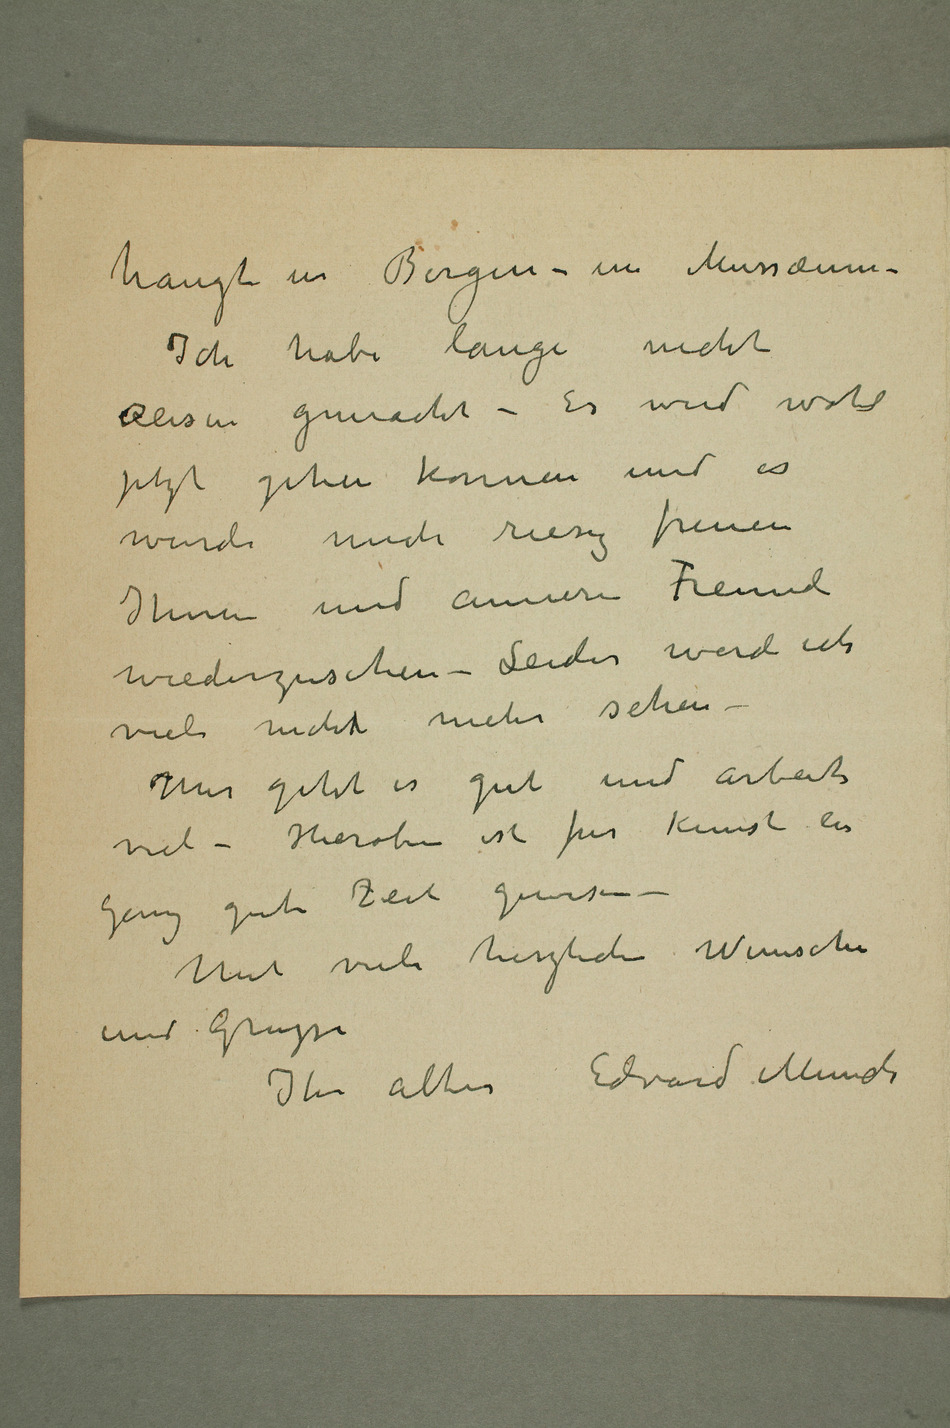 hangt in Bergen – im Mussæum –
Ich habe lange nicht
Reisen gemacht – Es wird wohl
jetzt gehen konnen und es
wurde mich riesig freuen
Ihnen und annere Freund
wiederzusehen – Leider werd ich
viele nicht mehr sehen –
Mir geht es gut und arbeite
viel – Hieroben ist für Kunst ein
ganz gute Zeit gewesen –
Mit viele herzliche Wünsche
und Grüsse
Ihr alter Edvard Munch